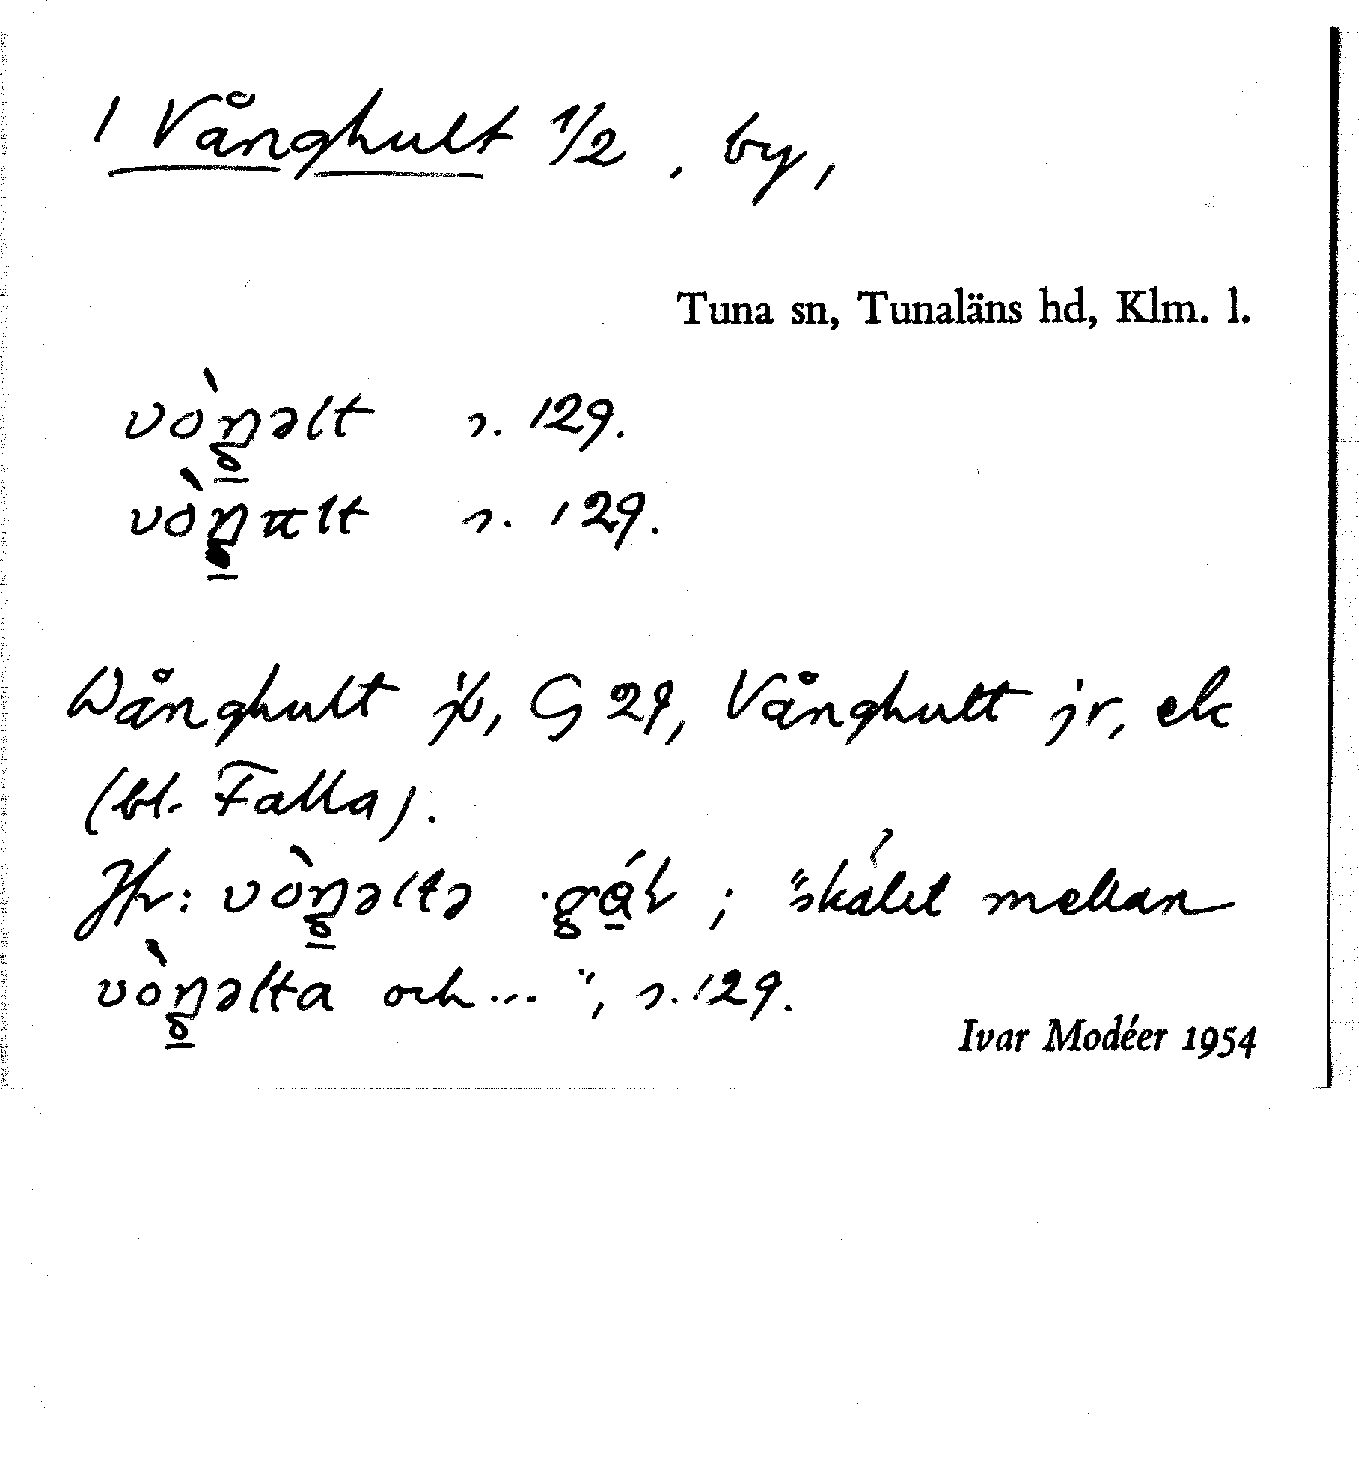 1 Vånghult 1/2, by,
Tuna sn, Tunaläns hd, Klm. l.
vòŋəlt s. 129.
vòŋ lt s. 129.
Wånghult jb, G 29, Vånghult jr, ek
(bl. Falla).
Jfr: vòŋəltə ; "skälet mellan
vòŋəlta och ... ", s. 129.
Ivar Modéer 1954